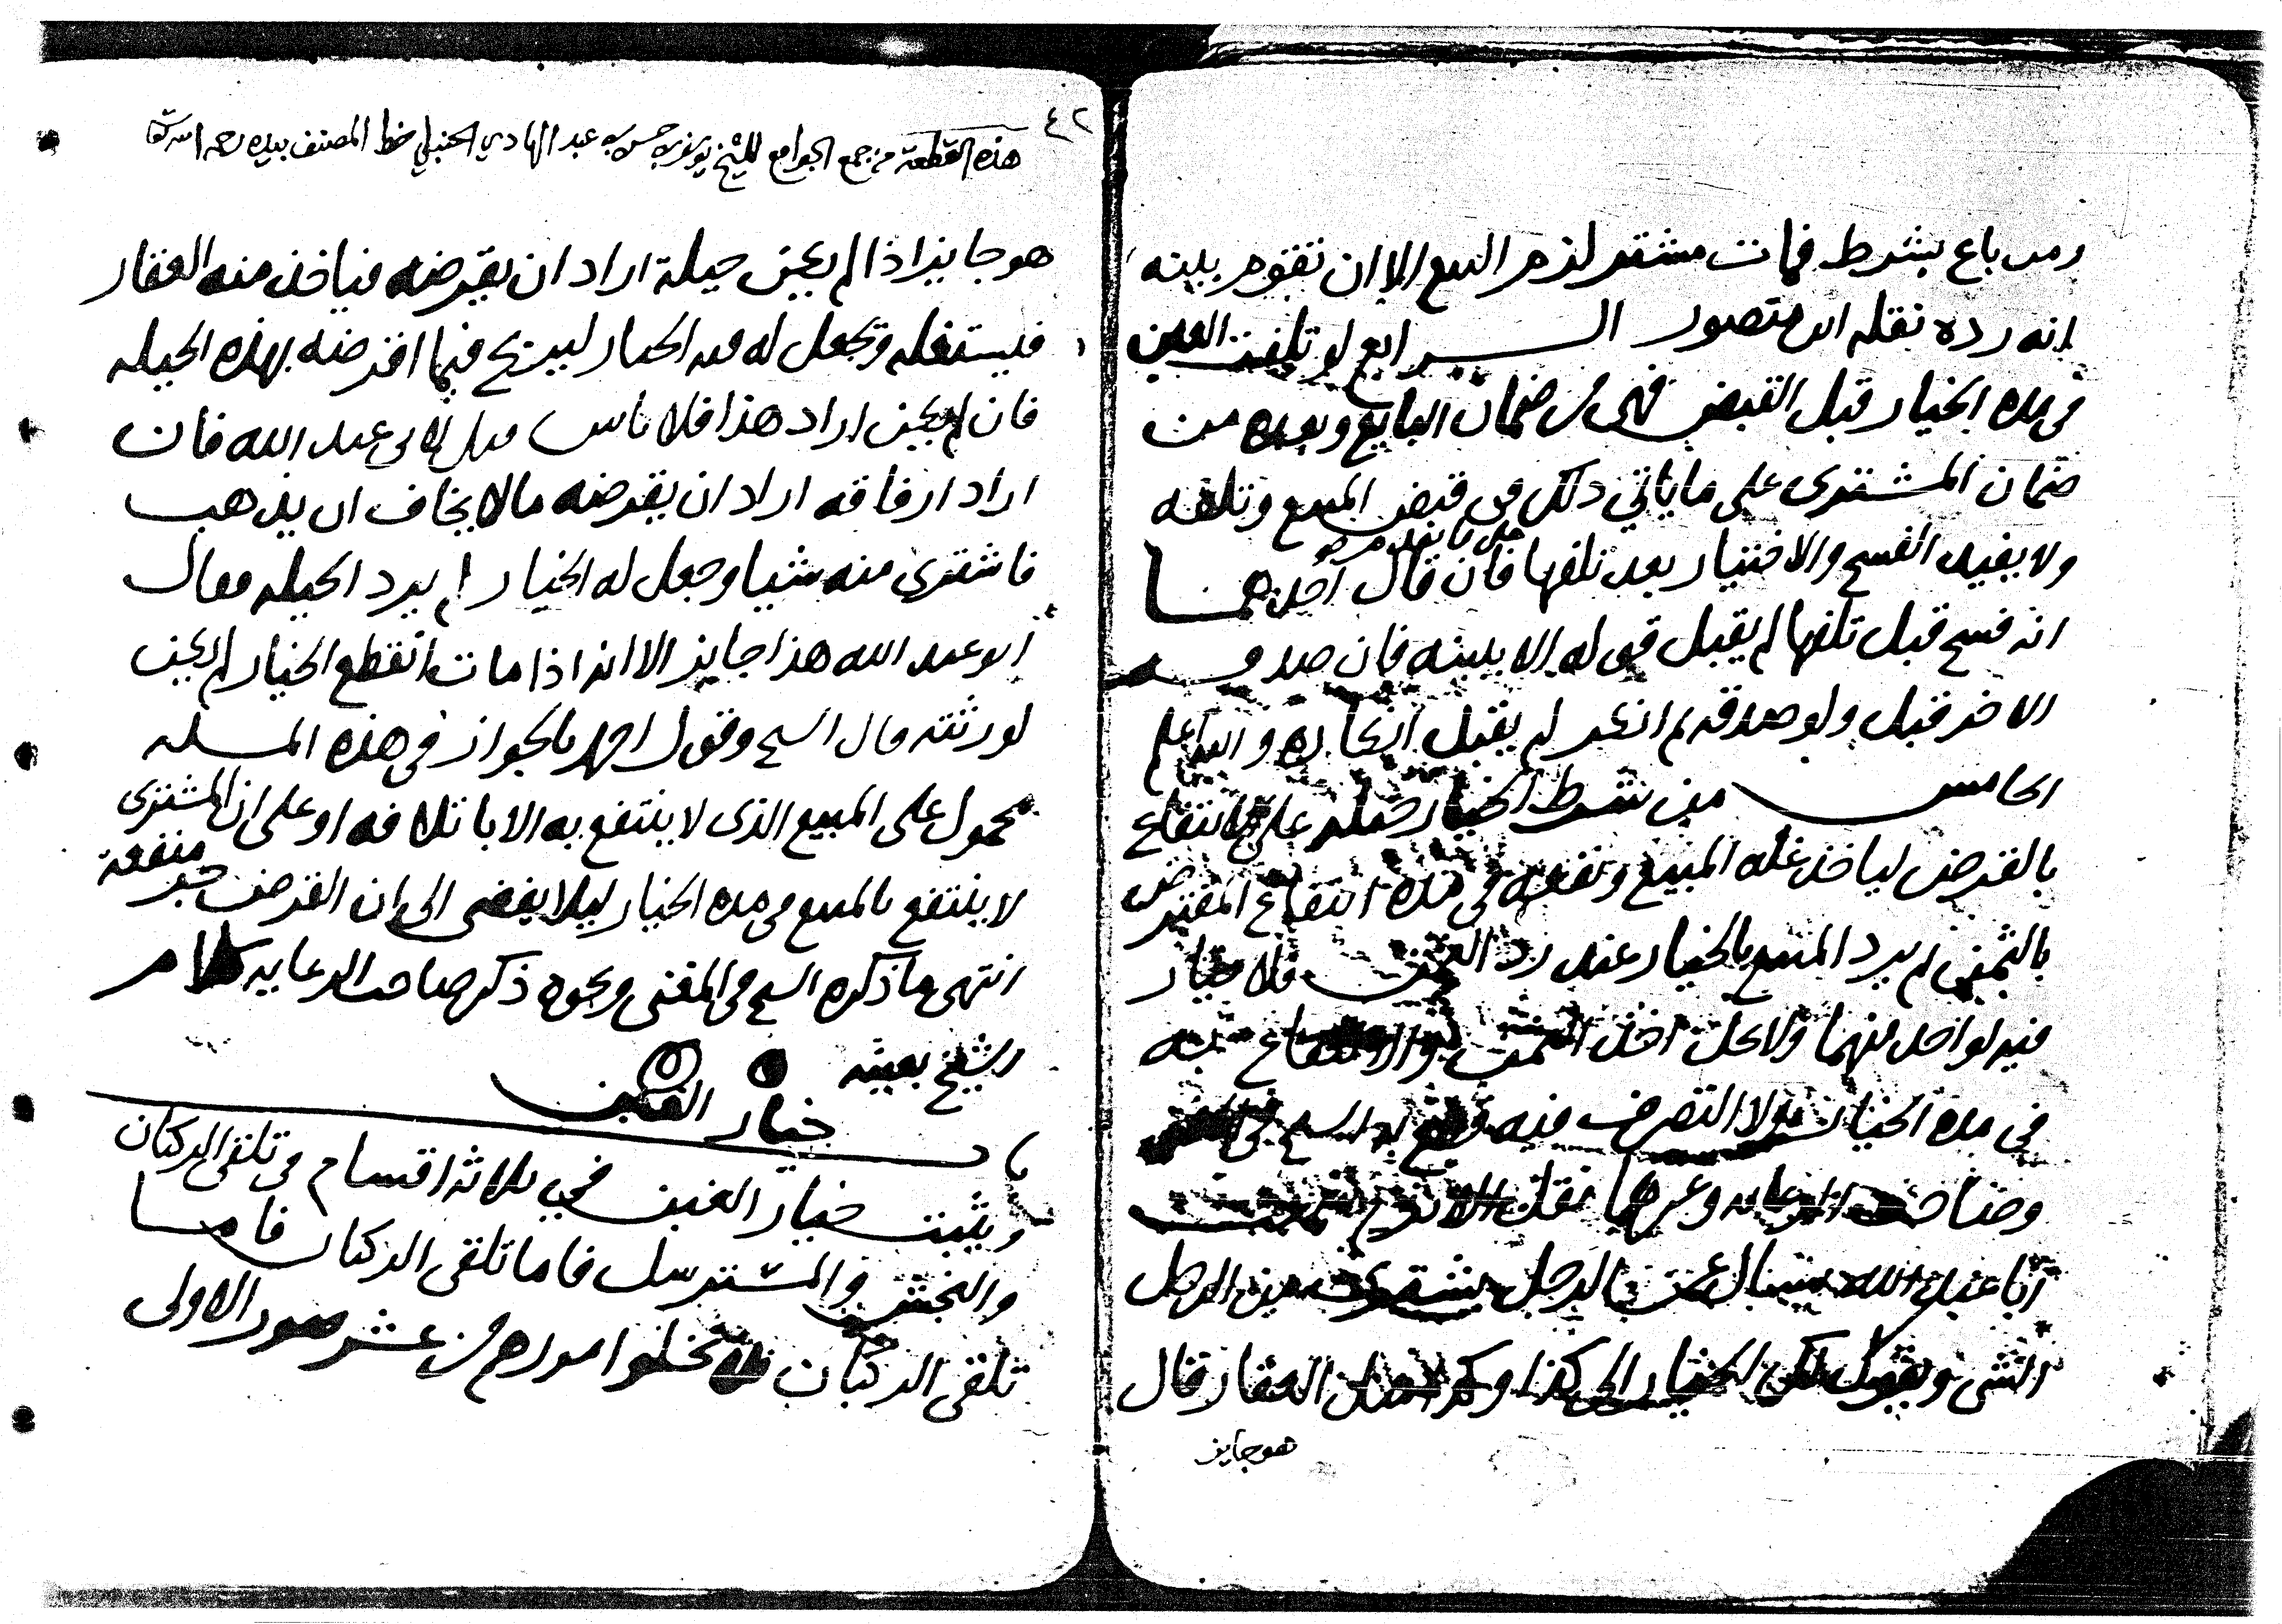 ومن باع بشرط فمات مشتر لزم البيع الا ان تقوم بينه
انه رده نقله ابن منصور الرابع لو تلفت العين
في مده الخيار قبل القبض فهي من ضمان البايع وبعده من
ضمان المشترى على ما ياتي ذلك في قبض المبيع وتلفه
ولا يفيد الفسخ والاختيار بعد تلفها فان قال احدهما
انه فسخ قبل تلفها لم يقبل قوله الا ببينه فان صدقه
الاخر قبل ولو صدقه ثم انكر لم يقبل انكاره والله اعلم
الخامس من شرط الخيار حيله على الانتفاع
بالقرض لياخذ غله المبيع ونفعه في مده انتفاع المقترض
بالثمن ثم يرد المبيع بالخيار عند رد الثمن فلا خيار
فيه لواحد منهما ولا يحل اخذ الثمن والانتفاع به
في مده الخيار ولا التصرف فيه قطع به الشيخ في
وصاحب الرعايه وغيرهما نقل الاثرم سمعت
ابا عبد الله يسال عن الرجل يشترى من الرجل
الشى ويقول لك الخيار الى كذا وكذا مثل العقار قال
هو جايز
٤٢
هذه القطعة من جمع الجوامع للشيخ يوسف بن حسن بن عبد الهادي الحنبلي خط المصنف بيده رحمه الله تعا
هو جايز اذا لم يكن حيلة اراد ان يقرضه فياخذ منه العقار
فيستغله ويجعل له فيه الخيار ليربح فيما اقرضه بهذه الحيله
فان لم يكن اراد هذا فلا باس قيل لابي عبد الله فان
اراد ارفاقه اراد ان يقرضه مالا يخاف ان يذهب
فاشترى منه شيا وجعل له الخيار لم يرد الحيله فقال
ابو عبد الله هذا جايز الا انه اذا مات انقطع الخيار لم يكن
لورثته قال الشيخ وقول احمد بالجواز في هذه المسله
محمول على المبيع الذى لا ينتفع به الا باتلافه او على ان المشترى
لا ينتفع بالمبيع في مده الخيار ليلا يفضى الى ان القرض جر منفعة
انتهى ما ذكره الشيخ في المغنى ونحوه ذكر صاحب الرعايه كلام
الشيخ بعينه
باب خيار الغبن
ويثبت خيار الغبن في ثلاثه اقسام في تلقى الركبان
والنجش والمسترسل فاما تلقى الركبان فاما
تلقى الركبان فلا تخلوا امورهم من عشر صور الاولى